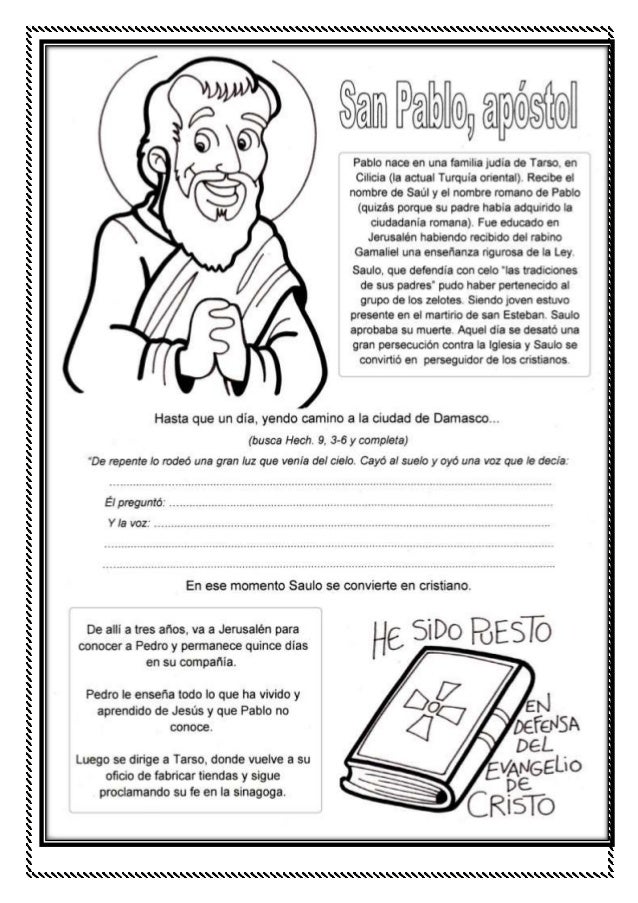 San Pablo, apóstol
Pablo nace en una familia judía de Tarso, en
Cilicia (la actual Turquía oriental). Recibe el
nombre de Saúl y el nombre romano de Pablo
(quizás porque su padre había adquirido la
ciudadanía romana). Fue educado en
Jerusalén habiendo recibido del rabino
Gamaliel una enseñanza rigurosa de la Ley.
Saulo, que defendía con celo "las tradiciones
de sus padres" pudo haber pertenecido al
grupo de los zelotes. Siendo joven estuvo
presente en el martirio de san Esteban. Saulo
aprobaba su muerte. Aquel día se desató una
gran persecución contra la Iglesia y Saulo se
convirtió en perseguidor de los cristianos.
Hasta que un día, yendo camino a la ciudad de Damasco...
(busca Hech. 9, 3-6 y completa)
"De repente lo rodeó una gran luz que venía del cielo. Cayó al suelo y oyó una voz que le decía:
Él preguntó:
Y la voz:
En ese momento Saulo se convierte en cristiano.
De allí a tres años, va a Jerusalén para
conocer a Pedro y permanece quince días
en su compañía.
Pedro le enseña todo lo que ha vivido y
aprendido de Jesús y que Pablo no
conoce.
Luego se dirige a Tarso, donde vuelve a su
oficio de fabricar tiendas y sigue
proclamando su fe en la sinagoga.
HE SIDO PUESTO
EN
DEFENSA
DEL
EVANGELIO
DE
CRISTO